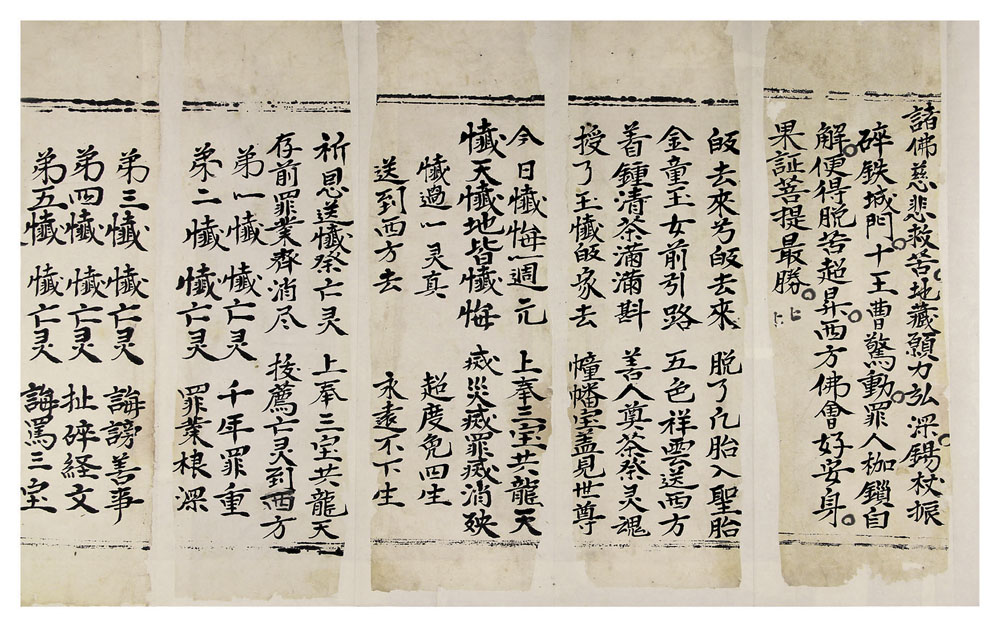 諸佛慈悲救苦地藏願力弘深錫杖振
碎铁城門十王曹驚動罪人枷鎖自
解便得脫苦超昇西方佛會好安身
果証菩提最勝
皈去來兮皈去來 脫了凡胎入聖胎
金童玉女前引路 五色祥雲送西方
着鍾清茶滿滿斟 善人奠茶祭灵魂
授了王懺皈家去 幢幡宝盖見世尊
今日懺悔一週元 上奉三宝共龍天
懺天懺地皆懺悔 烕災烕罪烕消殃
懺過一灵真 超度免四生
送到西方去 永遠不下生
祈恩送懺祭亡灵 上奉三宝共龍天
存前罪業齊消尽 拔薦亡灵到西方
弟一懺 懺亡灵 千年罪重
弟二懺 懺亡灵 罪業根深
弟三懺 懺亡灵 誨謗善事
弟四懺 懺亡灵 扯碎経文
弟五懺 懺亡灵 誨罵三宝